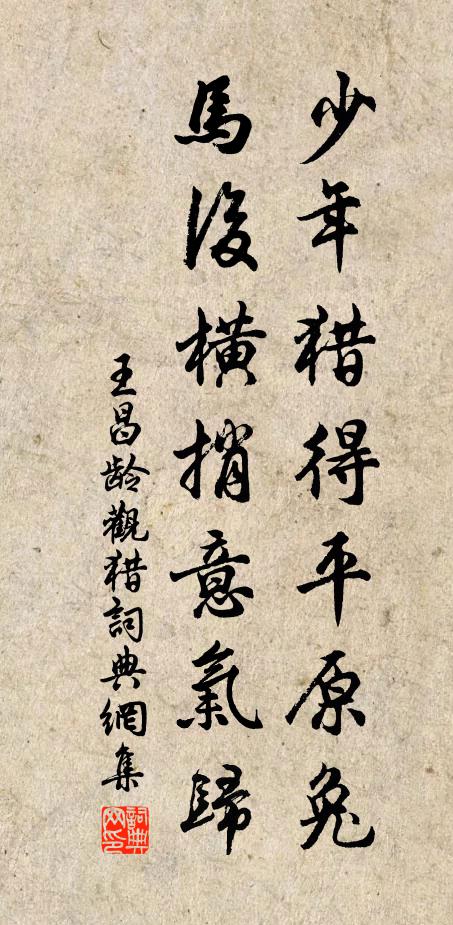 少年猎得平原兔
馬後橫捎意氣歸
王昌龄觀猎詞典網集
詞典网印